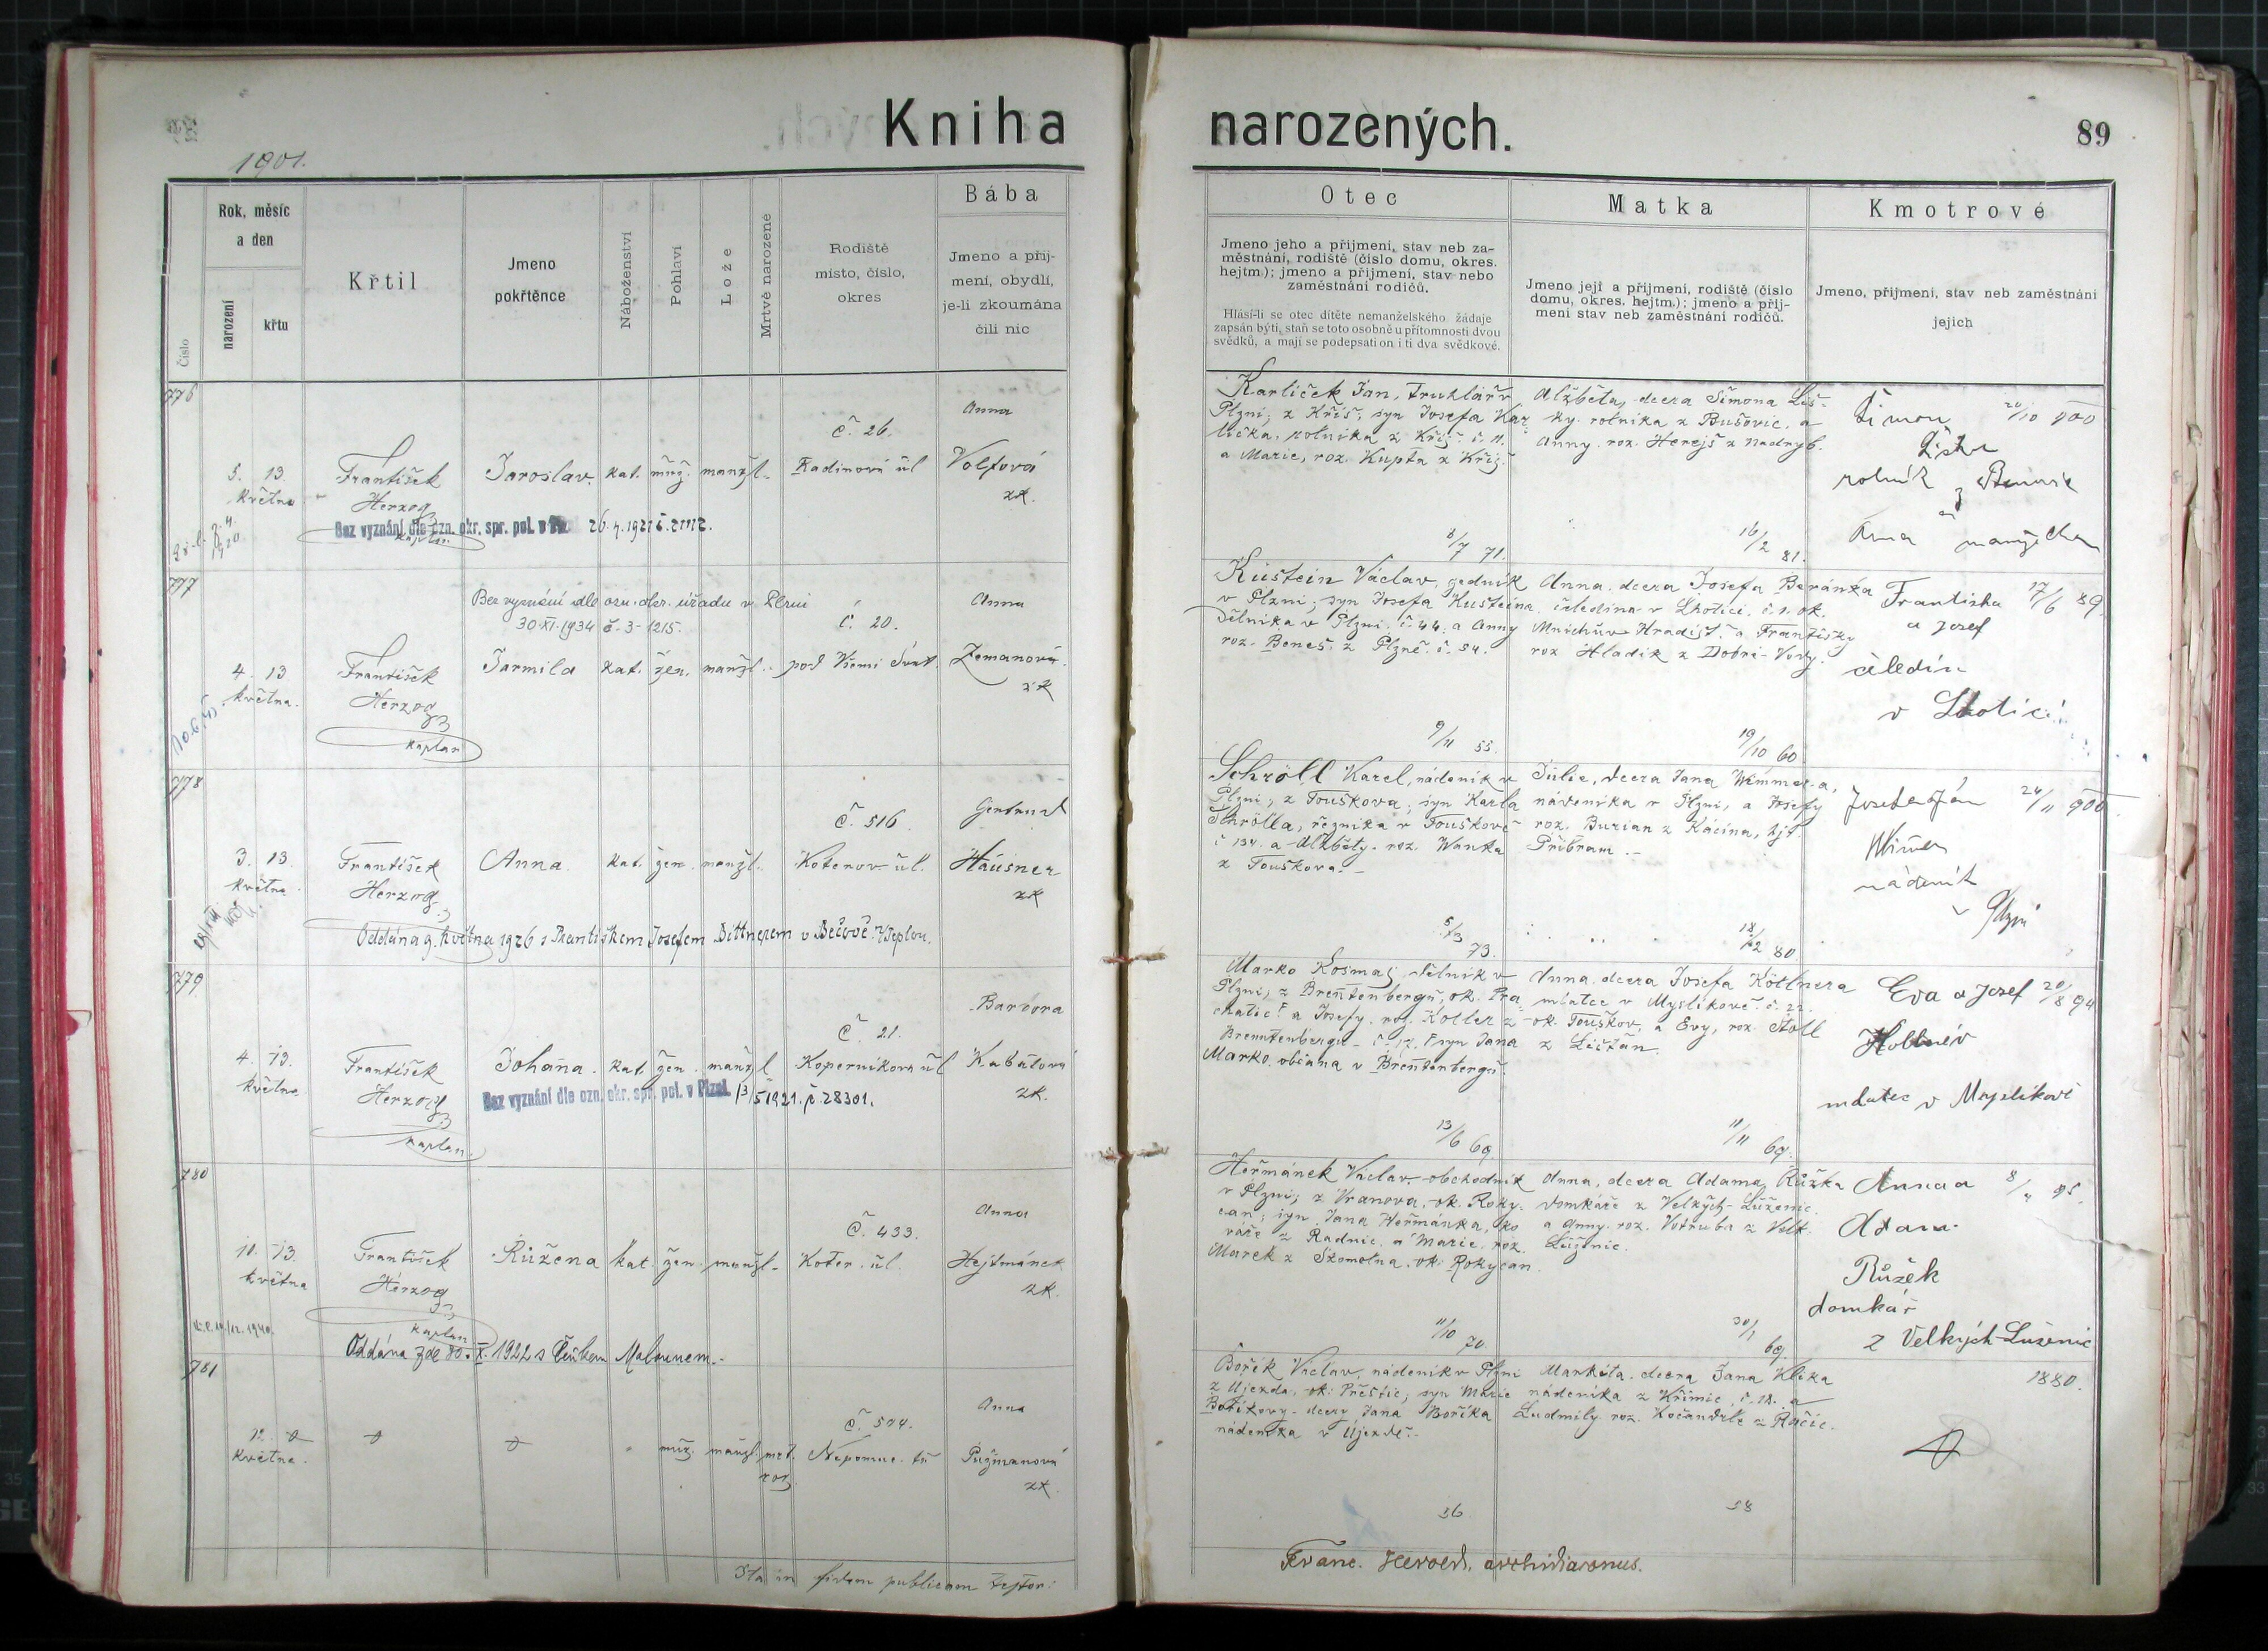 Kniha narozených.
89
1901.
Číslo
Rok, měsíc
a den
narození
křtu
Křtil
Jmeno
pokřtěnce
Náboženství
Pohlaví
Lože
Mrtvě narozené
Rodiště
místo, číslo,
okres
Bába
Jmeno a příj-
mení, obydlí,
je-li zkoumána
čili nic
Otec
Jmeno jeho a přijmení, stav neb za-
městnání, rodiště (číslo domu, okres.
hejtm.); jmeno a přijmení, stav nebo
zaměstnání rodičů.
Hlásí-li se otec dítěte nemanželského žádaje
zapsán býti, staň se toto osobně u přítomnosti dvou
svědků, a mají se podepsati on i ti dva svědkové.
Matka
Jmeno její a přijmení, rodiště (číslo
domu, okres. hejtm.); jmeno a přij-
mení stav neb zaměstnání rodičů.
Kmotrové
Jmeno, přijmení, stav neb zaměstnání
jejich
776
5. 13.
května
František
Herzog
kaplan
Jaroslav. kat. muž. manžl.
č. 26.
Radinová ul
Anna
Volfová
zk.
Bez vyznání dle ozn. okr. spr. pol. v
Karlíček Jan, truhlář v
Plzni, z Kříš, syn Josefa Kar
líčka, rolníka z Kříš. č. 11.
a Marie, roz. Kupta z Kříš.
8/7 71.
Alžběta, dcera Šimona Liš-
ky, rolníka z Bušovic, a
Anny, roz. Herejš z Nadryb.
16/2 81.
Šimon
20/10 900
rolník z
a
Anna manželka
777
4. 13
května.
František
Herzog
kaplan
Bez vyznání dle ozn. okr. úřadu v Plzni
30.XI.1934 č.-3-1215.
Jarmila kat. žen. manžl.
č. 20.
pod Všemi Svat.
Anna
Zemanová.
zk
Kustein Václav, zedník
v Plzni, syn Josefa Kusteina,
dělníka v Plzni č. 44. a Anny
roz. Beneš. z Plzně. č. 54.
9/11 55.
Anna, dcera Josefa Beránka
čeledína v Lhotici. č. 1. ok.
Mnichův Hradišť. a Františky
roz Hladík z Dobrí-Vody.
19/10 60
Františka 17/6 89.
a Josef
čeledín
v Lhotici.
778
3. 13.
května.
František
Herzog
Anna. kat. žen. manžl.
č. 516.
Koterov ul.
Gertrud
Häusner
zk
Oddána 9. května 1926 s Františkem Josefem Dittnerem v Bečově n/Teplou.
Schröll Karel, nádeník v
Plzni, z Touškova, syn Karla
Schrölla, řezníka v Touškově
č 134. a Alžběty. roz. Wanka
z Touškova.
5/3 73.
Julie, dcera Jana Wimmer-a,
nádeníka v Plzni, a Josefy
roz. Burian z Kácína, hjt.
Příbram.
18/12 80.
Josef a Ján 24/11 900
nádeník
v Plzni
779
4. 13.
května
František
Herzog
kaplan.
Johana. kat. žen. manžl
č. 21.
Koperníkova ul
Barbora
Kabátová
zk.
Bez vyznání dle ozn. okr. spr. pol. v Plzni. 13/5 1921. č. 28301.
Marko Kosmas, dělník v
Plzni, z Brentenbergu, ok. Pra
chatic a Josefy, roz. Koller z
Brenntenbergu č. 17. syn Jana
Marko, občana v Brentenbergu.
13/6 69
Anna, dcera Josefa Köllnera
mlatce v Myslíkově č. 22.
ok. Touškov, a Evy, roz. Stöll
z Líšťan.
11/11 69.
Eva a Josef 20/8 94
mlatec v Myslíkově
780
11. 13.
května
František
Herzog
kaplan
Růžena kat. žen. manžl.
č. 433.
Koter. ul.
Anna
Hejtmánek
zk.
Oddána zde 30. X. 1922 s Čeňkem
Heřmánek Václav, obchodník
v Plzni; z Vranova, ok. Roky-
can, syn Jana Heřmánka, ko
váře z Radnic, a Marie, roz.
Marek z Skomelna, ok. Rokycan.
11/10 70.
Anna, dcera Adama Růžka
domkáře z Velkých-Luženic,
a Anny. roz. Votruba z Velk.
Lužnic.
30/1 69.
Anna a 8/11 95.
Adam
Růžek
domkář
z Velkých Luženic
781
12.
května.
muž. manžl. mrt.
roz.
č. 504.
Nepomuc. tř
Anna
Pužmanová
zk.
Bořík Václav, nádeník v Plzni
z Újezda, ok. Přeštic, syn Marie
Boříkovy, dcery Jana Boříka
nádeníka v Újezdě.
56
Markéta, dcera Jana Klika
nádeníka z Křimic, č. 18. a
Ludmily roz. Kočandrle z Račic.
58
1880.
Ita in fidem publicam testor:
Franc. Herold, archidiaconus.